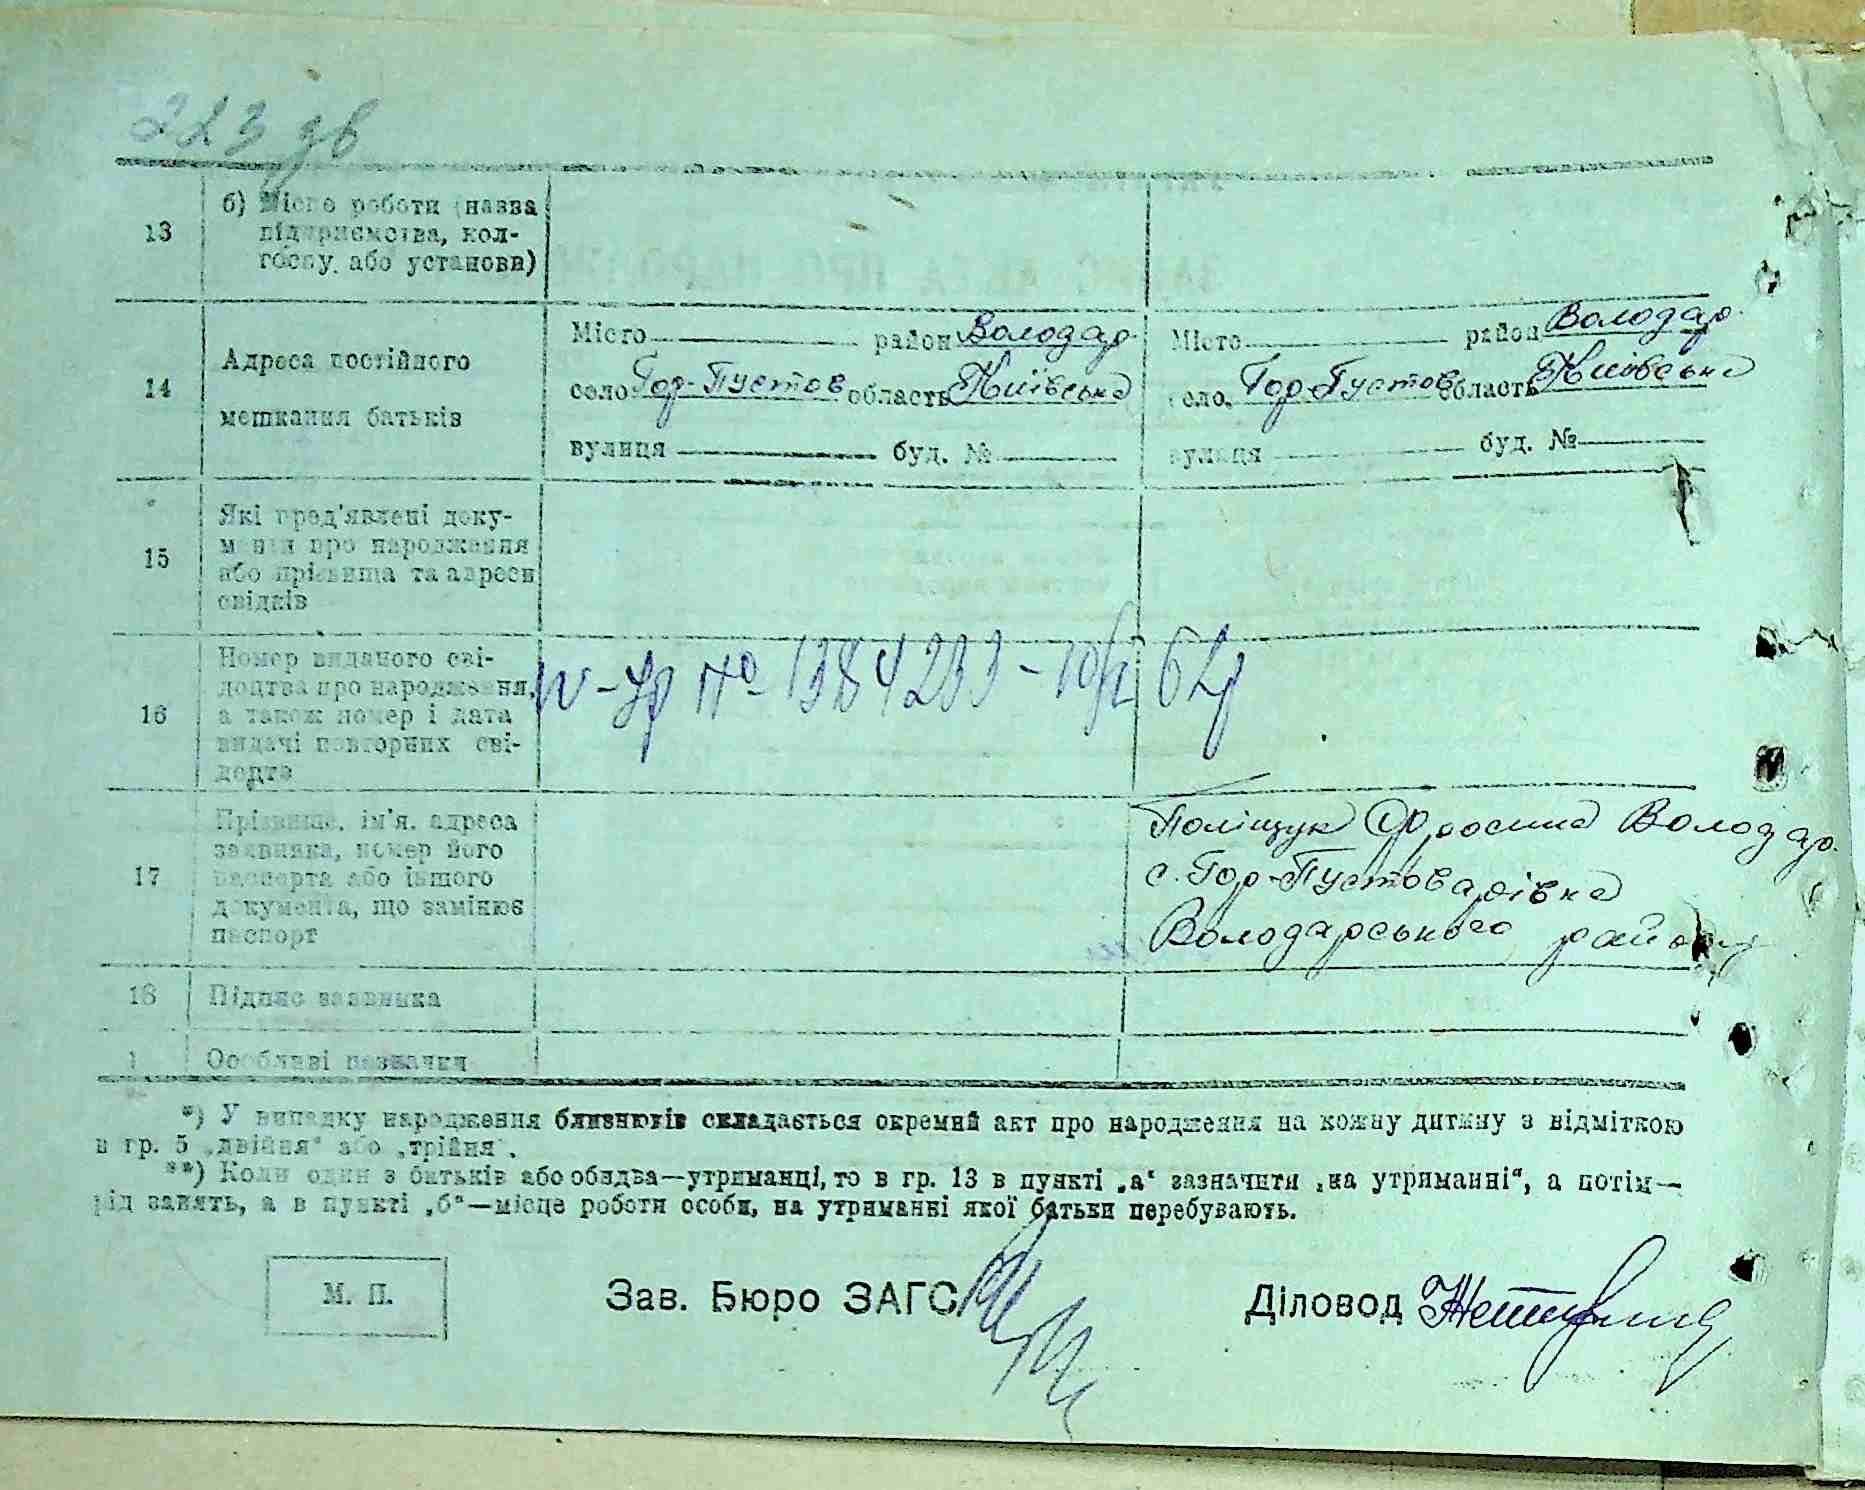 223 зв
13
б) Місце роботи (назва
підприємства, кол-
госпу або установи)
14
Адреса постійного
мешкання батьків
Місто район Володар.
село Гор-Пустов область Київська
вулиця буд. №
Місто район Володар.
село Гор-Пустов область Київська
вулиця буд. №
15
Які пред'явлені доку-
менти про народження
або прізвища та адреси
свідків
16
Номер виданого сві-
доцтва про народження,
а також номер і дата
видачі повторних сві-
доцтв
№ 1384233
17
Прізвище, ім'я, адреса
заявника, номер його
паспорта або іншого
документа, що замінює
паспорт
Поліщук Фросина Володар.
с. Гор-Пустоварівка
Володарського району
18
Підпис заявника
Особливі позначки
*) У випадку народження близнюків складається окремий акт про народження на кожну дитину з відміткою
в гр. 5 „двійня“ або „трійня“.
**) Коли один з батьків або обидва—утриманці, то в гр. 13 в пункті „а“ зазначити „на утриманні“, а потім—
рід занять, а в пункті „б“—місце роботи особи, на утриманні якої батьки перебувають.
М. П.
Зав. Бюро ЗАГС
Діловод